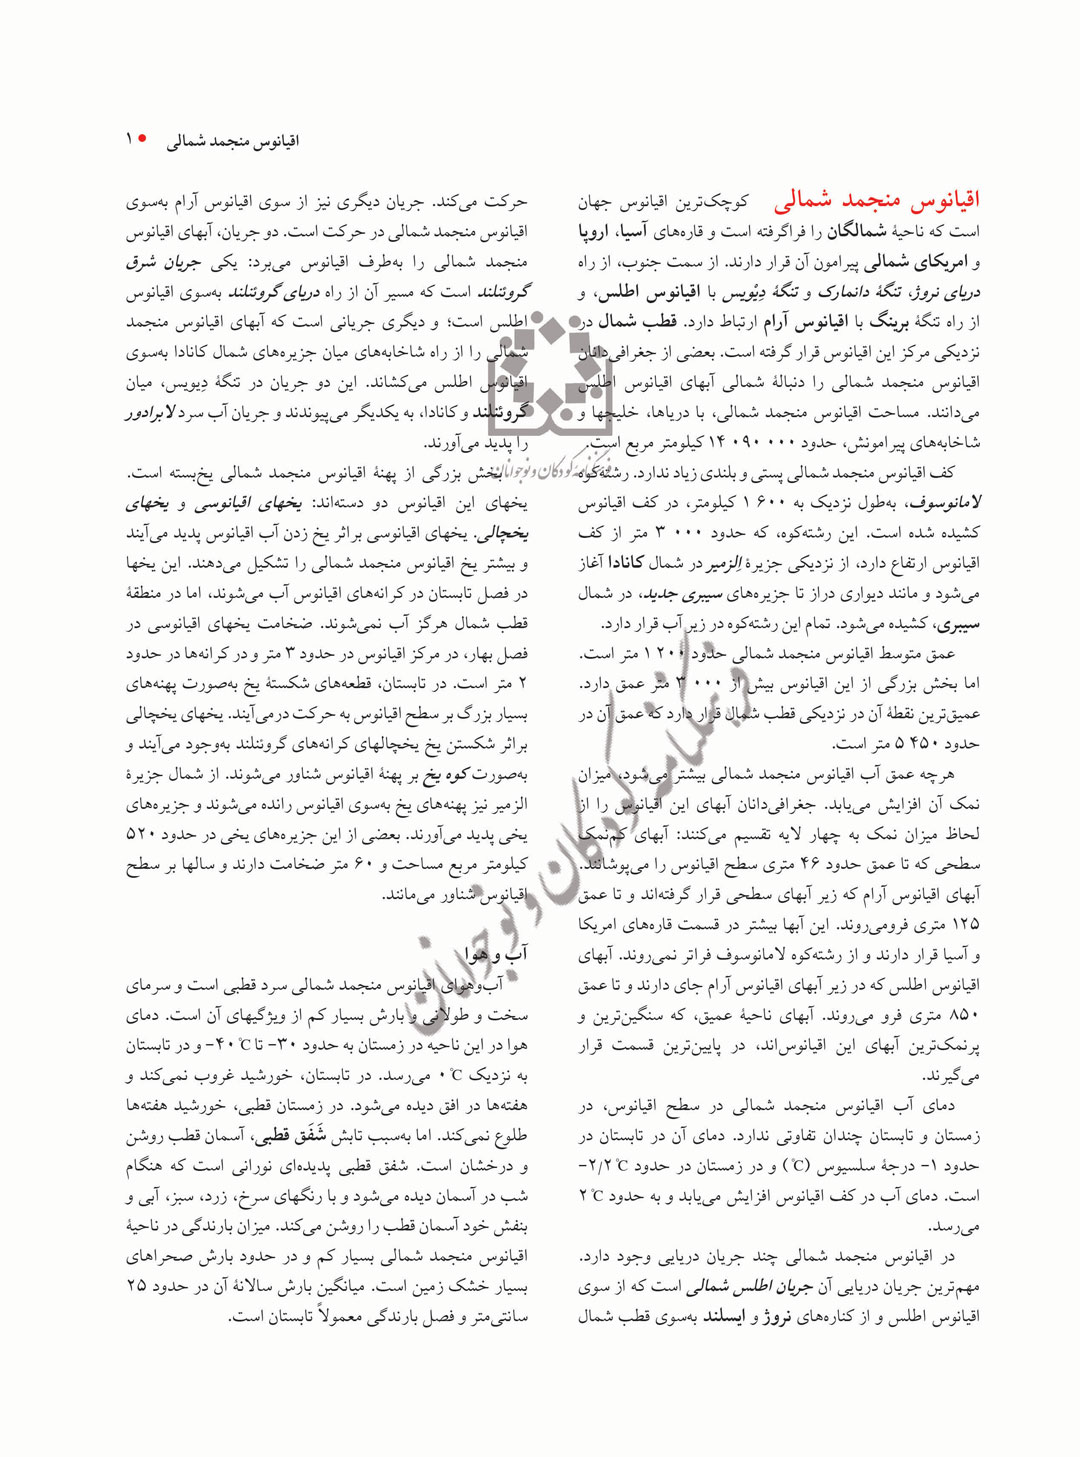 اقیانوس منجمد شمالی • ۱
اقیانوس منجمد شمالی کوچک‌ترین اقیانوس جهان
است که ناحیهٔ شمالگان را فراگرفته است و قاره‌های آسیا، اروپا
و امریکای شمالی پیرامون آن قرار دارند. از سمت جنوب، از راه
دریای نروژ، تنگهٔ دانمارک و تنگهٔ دِیْویس با اقیانوس اطلس، و
از راه تنگهٔ برینگ با اقیانوس آرام ارتباط دارد. قطب شمال در
نزدیکی مرکز این اقیانوس قرار گرفته است. بعضی از جغرافی‌دانان
اقیانوس منجمد شمالی را دنبالهٔ شمالی آبهای اقیانوس اطلس
می‌دانند. مساحت اقیانوس منجمد شمالی، با دریاها، خلیجها و
شاخابه‌های پیرامونش، حدود ۰۰۰ ۰۹۰ ۱۴ کیلومتر مربع است.
کف اقیانوس منجمد شمالی پستی و بلندی زیاد ندارد. رشته‌کوه
لامانوسوف، به‌طول نزدیک به ۶۰۰ ۱ کیلومتر، در کف اقیانوس
کشیده شده است. این رشته‌کوه، که حدود ۰۰۰ ۳ متر از کف
اقیانوس ارتفاع دارد، از نزدیکی جزیرهٔ اِلزمیر در شمال کانادا آغاز
می‌شود و مانند دیواری دراز تا جزیره‌های سیبری جدید، در شمال
سیبری، کشیده می‌شود. تمام این رشته‌کوه در زیر آب قرار دارد.
عمق متوسط اقیانوس منجمد شمالی حدود ۲۰۰ ۱ متر است.
اما بخش بزرگی از این اقیانوس بیش از ۰۰۰ ۳ متر عمق دارد.
عمیق‌ترین نقطهٔ آن در نزدیکی قطب شمال قرار دارد که عمق آن در
حدود ۴۵۰ ۵ متر است.
هرچه عمق آب اقیانوس منجمد شمالی بیشتر می‌شود، میزان
نمک آن افزایش می‌یابد. جغرافی‌دانان آبهای این اقیانوس را از
لحاظ میزان نمک به چهار لایه تقسیم می‌کنند: آبهای کم‌نمک
سطحی که تا عمق حدود ۴۶ متری سطح اقیانوس را می‌پوشانند.
آبهای اقیانوس آرام که زیر آبهای سطحی قرار گرفته‌اند و تا عمق
۱۲۵ متری فرومی‌روند. این آبها بیشتر در قسمت قاره‌های امریکا
و آسیا قرار دارند و از رشته‌کوه لامانوسوف فراتر نمی‌روند. آبهای
اقیانوس اطلس که در زیر آبهای اقیانوس آرام جای دارند و تا عمق
۸۵۰ متری فرو می‌روند. آبهای ناحیهٔ عمیق، که سنگین‌ترین و
پرنمک‌ترین آبهای این اقیانوس‌اند، در پایین‌ترین قسمت قرار
می‌گیرند.
دمای آب اقیانوس منجمد شمالی در سطح اقیانوس، در
زمستان و تابستان چندان تفاوتی ندارد. دمای آن در تابستان در
حدود ۱- درجهٔ سلسیوس (°C) و در زمستان در حدود ۲/۲°C-
است. دمای آب در کف اقیانوس افزایش می‌یابد و به حدود ۲°C
می‌رسد.
در اقیانوس منجمد شمالی چند جریان دریایی وجود دارد.
مهم‌ترین جریان دریایی آن جریان اطلس شمالی است که از سوی
اقیانوس اطلس و از کناره‌های نروژ و ایسلند به‌سوی قطب شمال
حرکت می‌کند. جریان دیگری نیز از سوی اقیانوس آرام به‌سوی
اقیانوس منجمد شمالی در حرکت است. دو جریان، آبهای اقیانوس
منجمد شمالی را به‌طرف اقیانوس می‌برد: یکی جریان شرق
گروئنلند است که مسیر آن از راه دریای گروئنلند به‌سوی اقیانوس
اطلس است؛ و دیگری جریانی است که آبهای اقیانوس منجمد
شمالی را از راه شاخابه‌های میان جزیره‌های شمال کانادا به‌سوی
اقیانوس اطلس می‌کشاند. این دو جریان در تنگهٔ دِیویس، میان
گروئنلند و کانادا، به یکدیگر می‌پیوندند و جریان آب سرد لابرادور
را پدید می‌آورند.
بخش بزرگی از پهنهٔ اقیانوس منجمد شمالی یخ‌بسته است.
یخهای این اقیانوس دو دسته‌اند: یخهای اقیانوسی و یخهای
یخچالی. یخهای اقیانوسی براثر یخ زدن آب اقیانوس پدید می‌آیند
و بیشتر یخ اقیانوس منجمد شمالی را تشکیل می‌دهند. این یخها
در فصل تابستان در کرانه‌های اقیانوس آب می‌شوند، اما در منطقهٔ
قطب شمال هرگز آب نمی‌شوند. ضخامت یخهای اقیانوسی در
فصل بهار، در مرکز اقیانوس در حدود ۳ متر و در کرانه‌ها در حدود
۲ متر است. در تابستان، قطعه‌های شکستهٔ یخ به‌صورت پهنه‌های
بسیار بزرگ بر سطح اقیانوس به حرکت درمی‌آیند. یخهای یخچالی
براثر شکستن یخ یخچالهای کرانه‌های گروئنلند به‌وجود می‌آیند و
به‌صورت کوه یخ بر پهنهٔ اقیانوس شناور می‌شوند. از شمال جزیرهٔ
الزمیر نیز پهنه‌های یخ به‌سوی اقیانوس رانده می‌شوند و جزیره‌های
یخی پدید می‌آورند. بعضی از این جزیره‌های یخی در حدود ۵۲۰
کیلومتر مربع مساحت و ۶۰ متر ضخامت دارند و سالها بر سطح
اقیانوس شناور می‌مانند.
آب و هوا
آب‌وهوای اقیانوس منجمد شمالی سرد قطبی است و سرمای
سخت و طولانی و بارش بسیار کم از ویژگیهای آن است. دمای
هوا در این ناحیه در زمستان به حدود ۳۰- تا ۴۰°C- و در تابستان
به نزدیک ۰°C می‌رسد. در تابستان، خورشید غروب نمی‌کند و
هفته‌ها در افق دیده می‌شود. در زمستان قطبی، خورشید هفته‌ها
طلوع نمی‌کند. اما به‌سبب تابش شَفَق قطبی، آسمان قطب روشن
و درخشان است. شفق قطبی پدیده‌ای نورانی است که هنگام
شب در آسمان دیده می‌شود و با رنگهای سرخ، زرد، سبز، آبی و
بنفش خود آسمان قطب را روشن می‌کند. میزان بارندگی در ناحیهٔ
اقیانوس منجمد شمالی بسیار کم و در حدود بارش صحراهای
بسیار خشک زمین است. میانگین بارش سالانهٔ آن در حدود ۲۵
سانتی‌متر و فصل بارندگی معمولاً تابستان است.
فرهنگنامهٔ کودکان و نوجوانان
فرهنگنامهٔ کودکان و نوجوانان